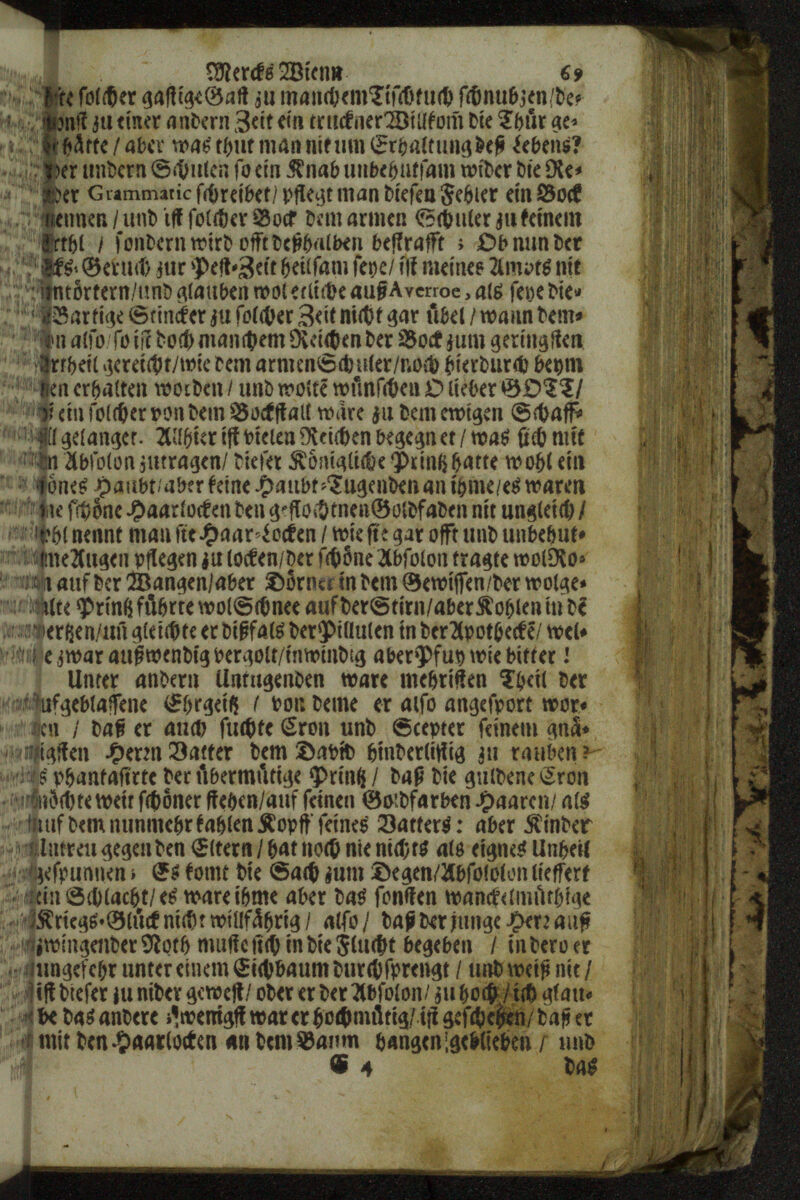 Mercks Wienn 69
solcher gastige Gast zu manchem Tischtuch schnubzen / de=
zu einer andern Zeit ein truckner Willkom̃ die Thür ge=
hätte / aber was thut man nit um Erhaltung deß Lebens?
undern Schulen so ein Knab unbehutsam wider die Re=
Grammatic schreibet / pflegt man diesen Fehler ein Bock
nennen / und ist solcher Bock dem armen Schuler zu keinem
/ sondern wird offt deßhalben bestrafft ; Ob nun der
Geruch zur Pest=Zeit heilsam seye / ist meines Amots nit
/ und glauben wol etliche auß Averroe, als seye die=
artige Stincker zu solcher Zeit nicht gar übel / wann dem=
also / so ist doch manchem Reichen der Bock zum geringsten
gereicht / wie dem armen Schuler / noch hierdurch beym
erhalten worden / und wolte wünschen O lieber GOTT /
ein solcher von dem Bockstall wäre zu dem ewigen Schaff=
gelanget. Allhier ist vielen Reichen begegnet / was sich mit
Absolon zutragen / dieser Königliche Printz hatte wohl ein
Haubt / aber keine Haubt=Tugenden an ihme / es waren
schöne Haarlocken den geflochtnen Goldfaden nit ungleich /
nennt man sie Haar=Locken / wie sie gar offt und unbehut=
Augen pflegen zu locken / der schöne Absolon tragte wol Ro=
auf der Wangen / aber Dörner in dem Gewissen / der wolge=
Printz führte wol Schnee auf der Stirn / aber Kohlen in dẽ
/ uñ gleichte er dißfals der Pillulen in der Apothecke / wel=
zwar außwendig vergolt / inwindig aber Pfuy wie bitter !
Unter andern Untugenden ware mehristen Theil der
aufgeblassene Ehrgeitz / von deme er also angesport wor=
/ daß er auch suchte Cron und Scepter seinem gnä=
Herrn Vatter dem David hinderlistig zu rauben ?
phantasirte der übermütige Printz / daß die guldene Cron
weit schöner stehen / auf seinen Goldfarben Haaren / als
auf dem nunmehr kahlen Kopff seines Vatters : aber Kinder
Untreu gegen den Eltern / hat noch nie nichts als eignes Unheil
gespunnen ; Es komt die Sach zum Degen / Absololon lieffert
ein Schlacht / es ware ihme aber das sonsten wanckelmüthige
Kriegs=Glück nicht willfährig / also / daß der junge Herz auß
zwingender Noth muste sich in die Flucht begeben / in dero er
ungefehr unter einem Eichbaum durchsprengt / und weiß nit /
ist dieser zu nider gewest / oder er der Absolon / zu hoch / ich glau=
be das andere ; wenigst war er hochmütig / ist geschehen / daß er
mit den Haarlocken an dem Baum hangen geblieben / und
G 4 das